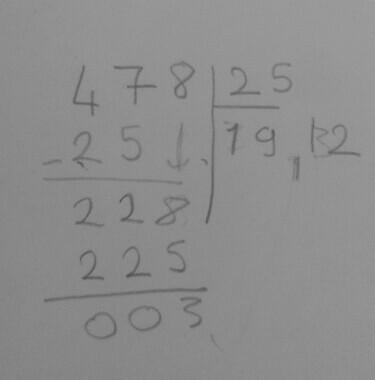 478 25
- 25 19, R2
228
225
003